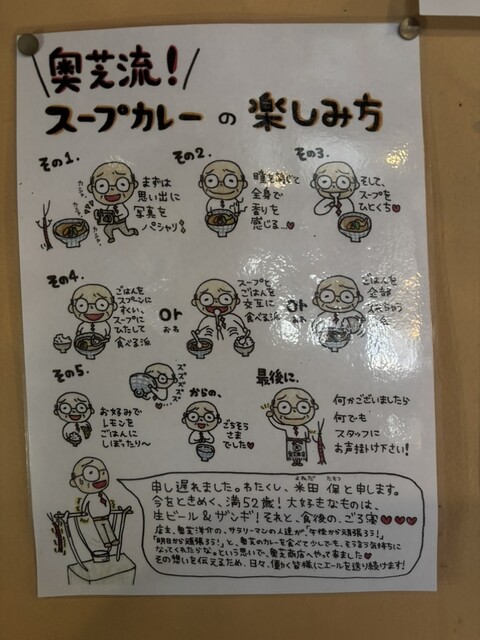 奥芝流!
スープカレーの楽しみ方
その1.
カシャ
カシャ
まずは
思い出に
写真を
パシャリ♡
その2.
瞳を閉じて
全身で
香りを
感じる…♥
その3.
そして、
スープを
ひとくち♥
その4.
ごはんを
スプーンに
すくい、
スープに
ひたして
食べる派
or
スープと
ごはんを
交互に
食べる派
or
ごはんを
全部
その5.
お好みで
レモンを
ごはんに
しぼったり〜
ズズズズズ
からの、
ごちそう
さま
でした♥
最後に.
何かございましたら
何でも
スタッフに
お声掛け下さい!
申し遅れました。わたくし、米田 保と申します。
よねだ たもつ
今をときめく、満52歳!大好きなものは、
生ビール&ザンギ!それと、食後の、ごろ寝♥♥♥
店主、奥芝洋介の、サラリーマンの人達が、「午後から頑張ろう!」
「明日から頑張ろう!」、と、奥芝のカレーを食べて少しでも、そうゆう気持ちに
なってくれたらな。という思いで、奥芝商店へやって来ました♥
その想いを伝えるため、日々、働く皆様にエールを送り続けます!